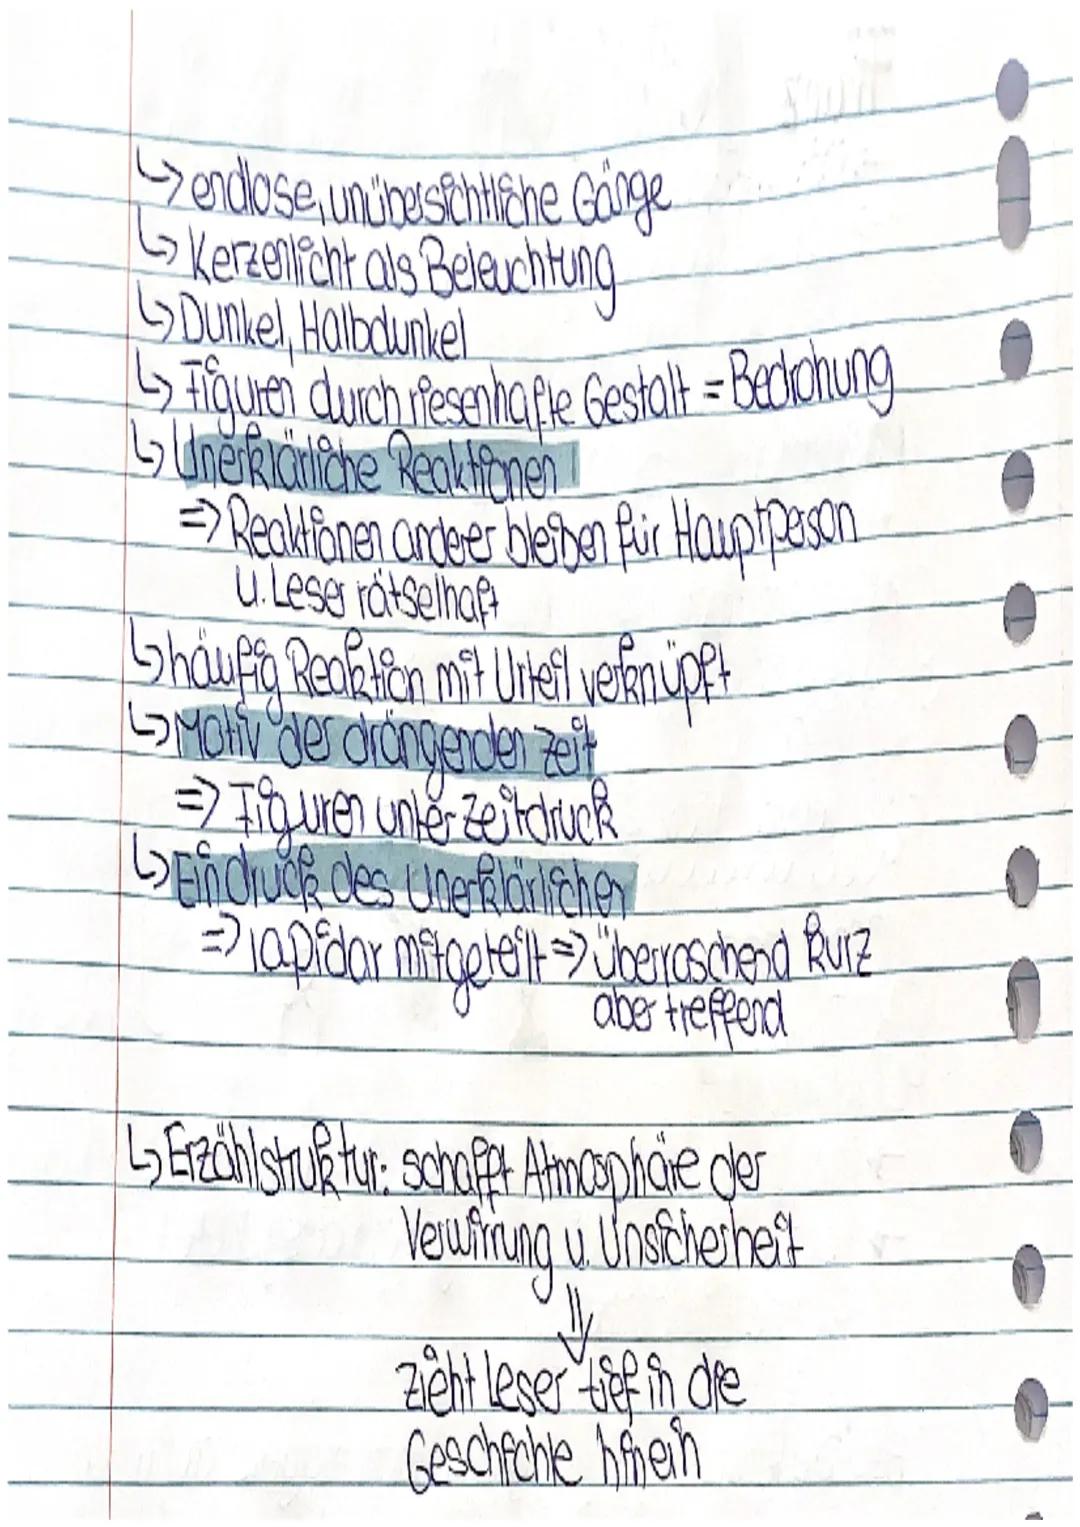 ↳ endlose, unübersichtliche Gänge
↳ Kerzenlicht als Beleuchtung
↳ Dunkel, Halbdunkel
↳ Figuren durch riesenhafte Gestalt = Bedrohung
↳ Unerklärliche Reaktionen
=> Reaktionen anderer bleiben für Hauptperson
u. Leser rätselhaft
↳ häufig Reaktion mit Urteil verknüpft
↳ Motiv der drängenden Zeit
=> Figuren unter Zeitdruck
↳ Eindruck des Unerklärlichen
=> lapidar mitgeteilt => überraschend kurz
aber treffend
↳ Erzählstruktur: schafft Atmosphäre der
Verwirrung u. Unsicherheit
⇓
zieht Leser tief in die
Geschichte hinein